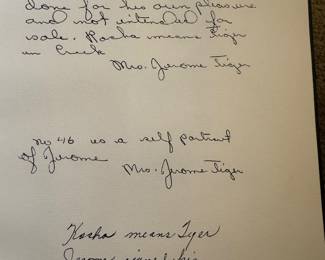 done for his own pleasure
and not intended for
sale. Kocha means Tiger
in Creek
Mrs. Jerome Tiger
no 46 is a self portrait
of Jerome
Mrs. Jerome Tiger
Kocha means Tyger
Jerome signed his